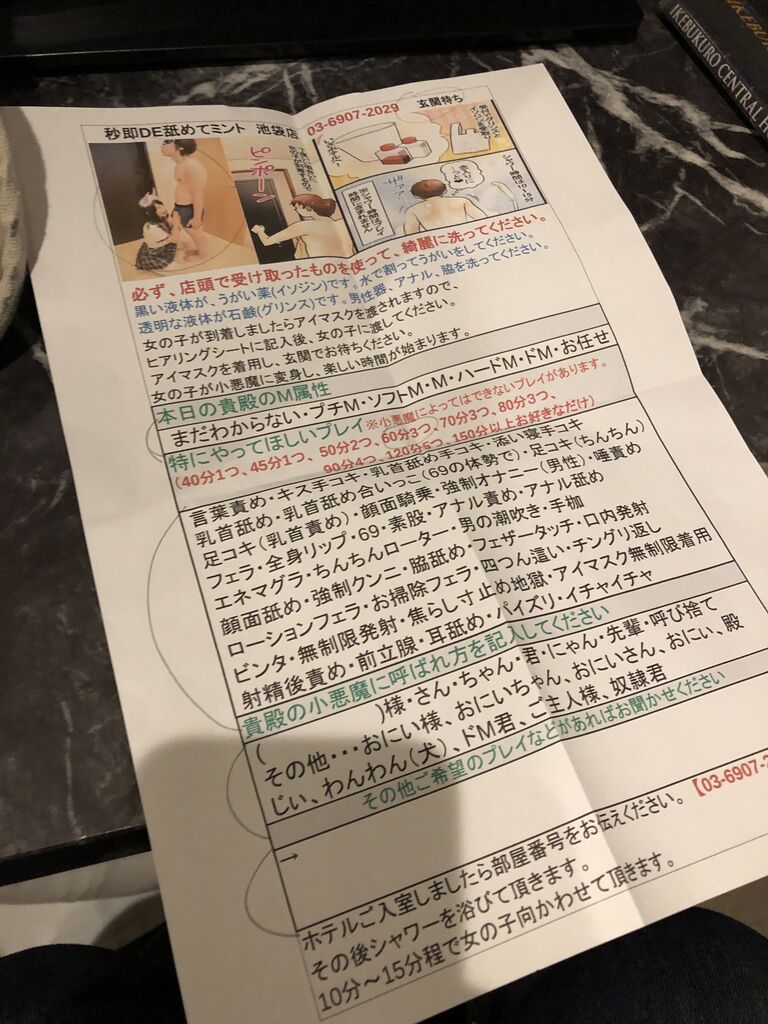 IKEBUKURO CENTRAL H
秒即DE舐めてミント 池袋店
03-6907-2029
玄関待ち
ピンポーン
必ず、店頭で受け取ったものを使って、綺麗に洗ってください。
黒い液体が、うがい薬(イソジン)です。水で割ってうがいをしてください。
透明な液体が石鹸(グリンス)です。男性器、アナル、脇を洗ってください。
女の子が到着しましたらアイマスクを渡されますので、
ヒアリングシートに記入後、女の子に渡してください。
アイマスクを着用し、玄関でお待ちください。
女の子が小悪魔に変身し、楽しい時間が始まります。
本日の貴殿のM属性
まだわからない・プチM・ソフトM・M・ハードM・ドM・お任せ
特にやってほしいプレイ※小悪魔によってはできないプレイがあります。
(40分1つ、45分1つ、50分2つ、60分3つ、70分3つ、80分3つ、
90分4つ、120分5つ、150分以上お好きなだけ)
言葉責め・キス手コキ・乳首舐め手コキ・添い寝手コキ
乳首舐め・乳首舐め合いっこ(69の体勢で)・足コキ(ちんちん)
足コキ(乳首責め)・顔面騎乗・強制オナニー(男性)・唾責め
フェラ・全身リップ・69・素股・アナル責め・アナル舐め
エネマグラ・ちんちんローター・男の潮吹き・手枷
顔面舐め・強制クンニ・脇舐め・フェザータッチ・口内発射
ローションフェラ・お掃除フェラ・四つん這い・チングリ返し
ビンタ・無制限発射・焦らし寸止め地獄・アイマスク無制限着用
射精後責め・前立腺・耳舐め・パイズリ・イチャイチャ
貴殿の小悪魔に呼ばれ方を記入してください
( )様・さん・ちゃん・君・にゃん・先輩・呼び捨て
その他・・・おにい様、おにいちゃん、おにいさん、おにぃ、殿
じぃ、わんわん(犬)、ドM君、ご主人様、奴隷君
その他ご希望のプレイなどがあればお聞かせください
→
ホテルご入室しましたら部屋番号をお伝えください。【03-6907-2
その後シャワーを浴びて頂きます。
10分～15分程で女の子向かわせて頂きます。